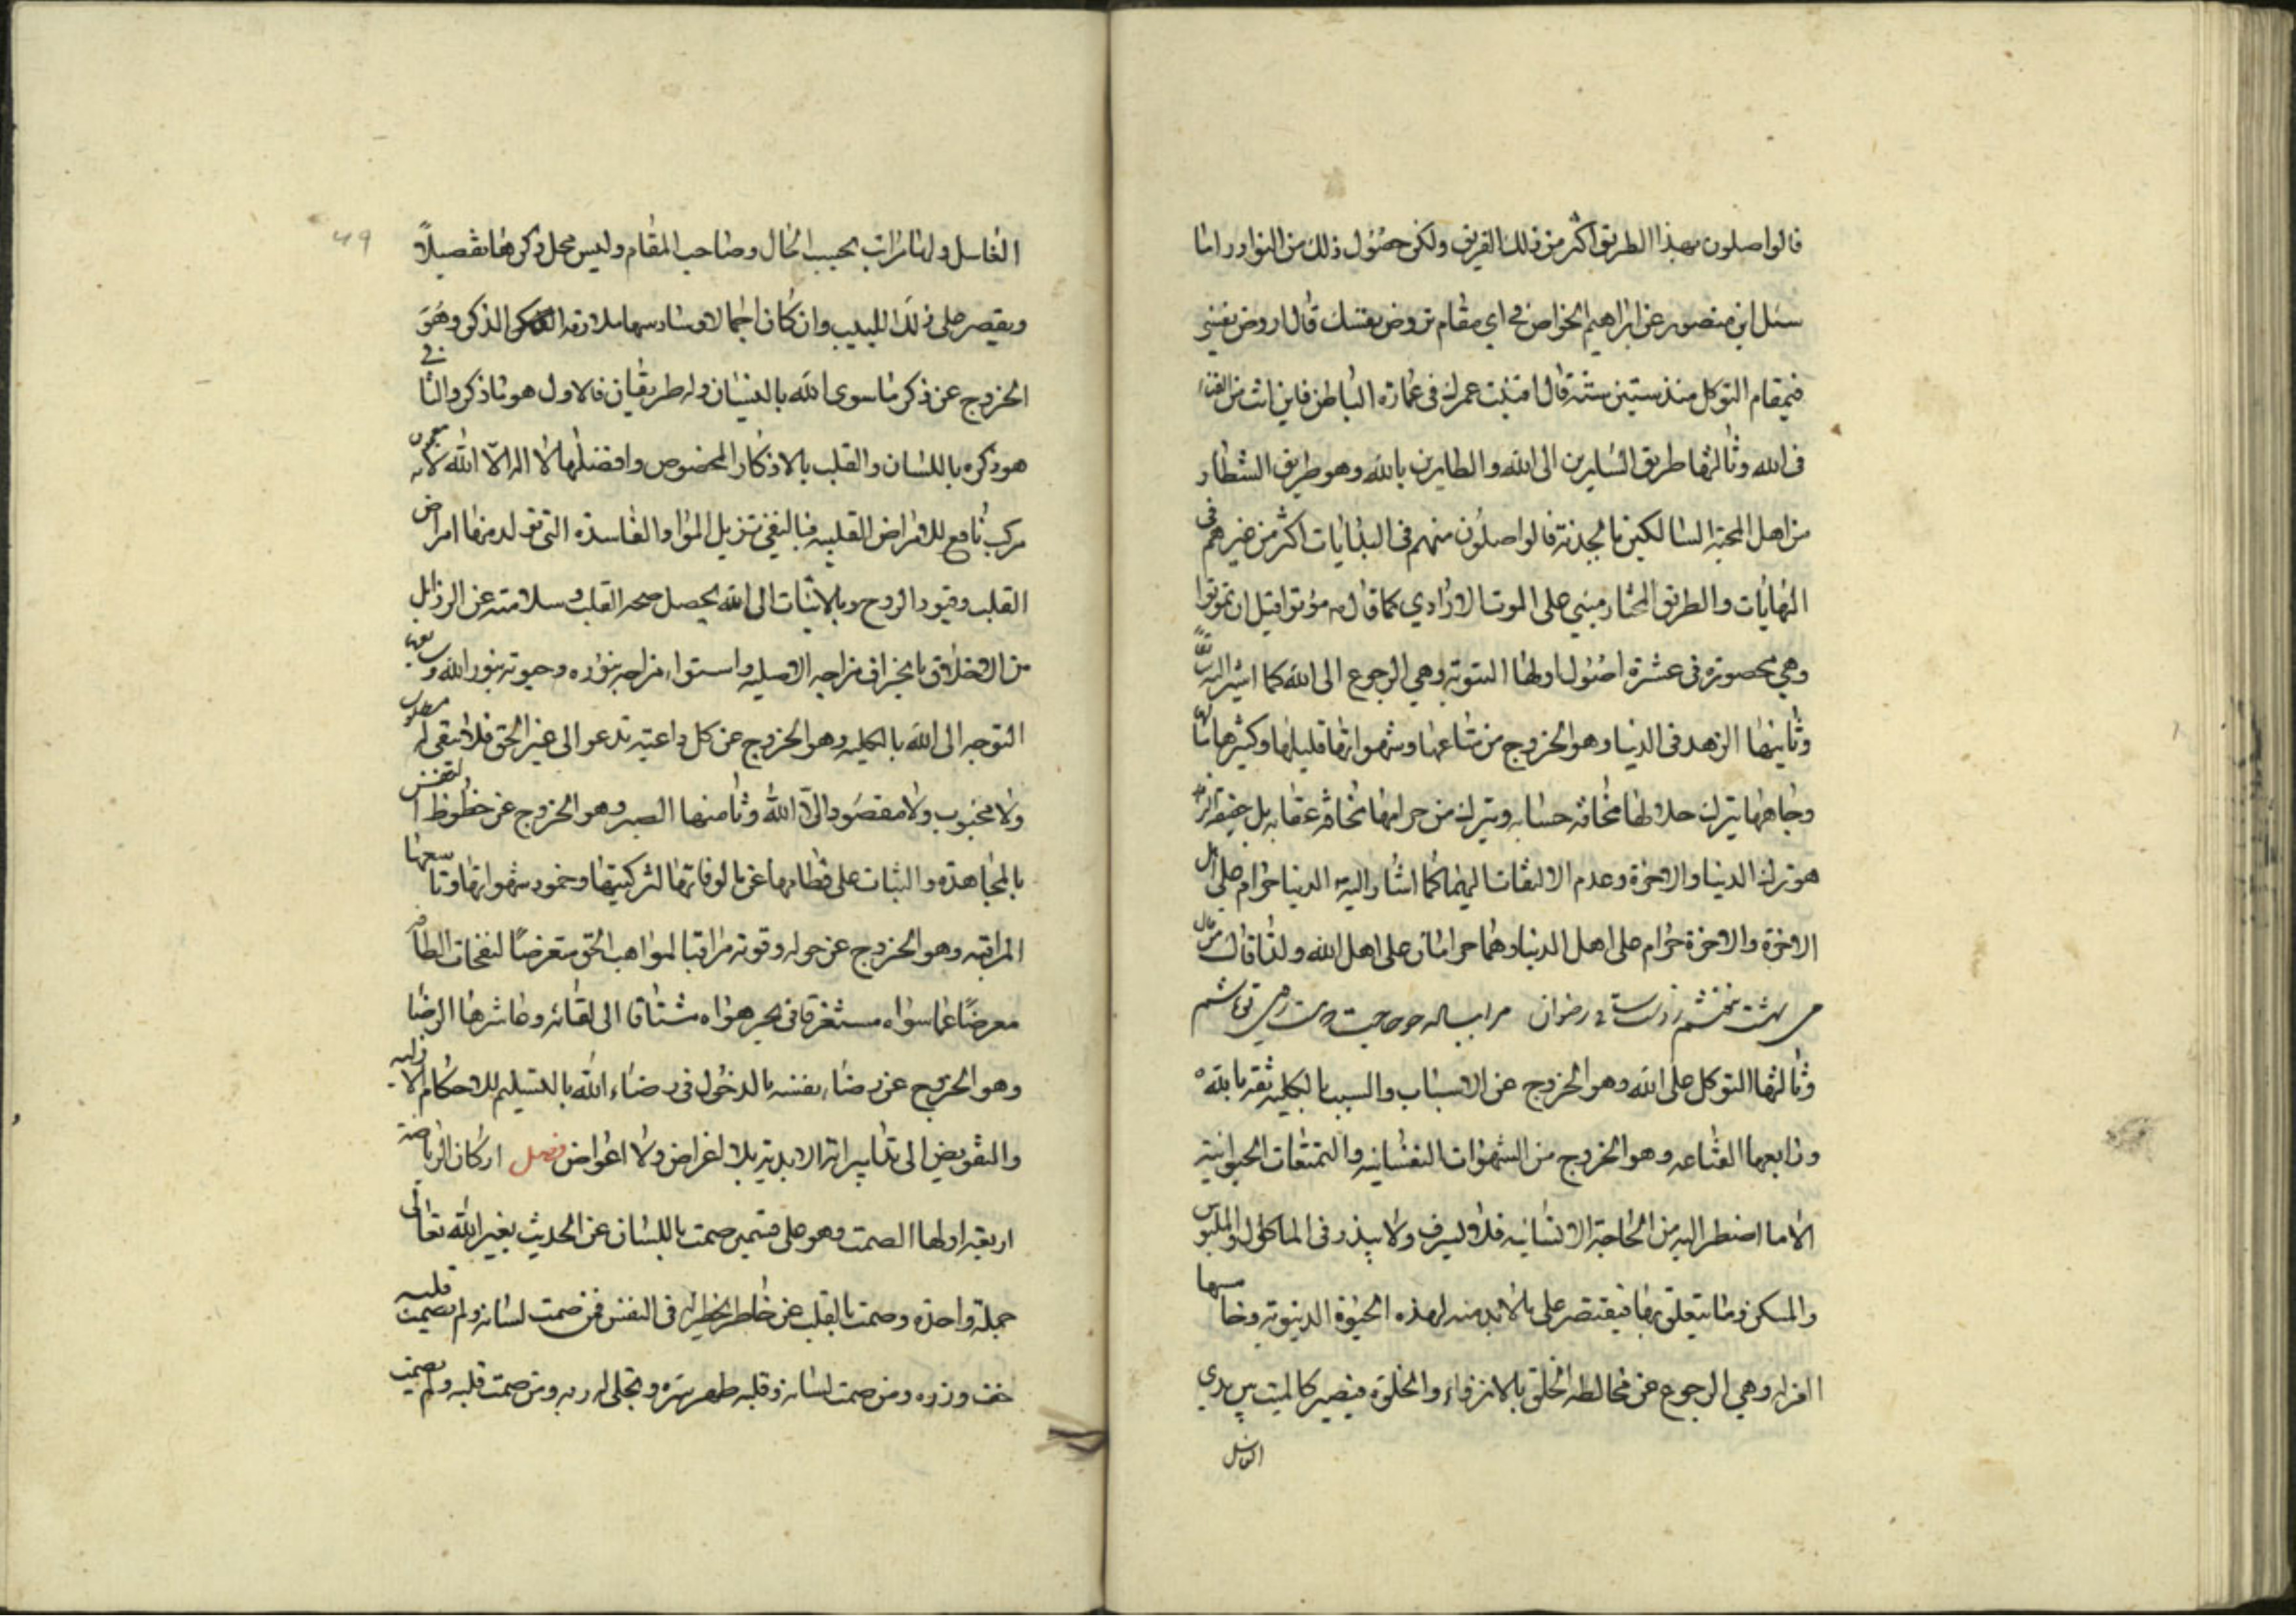 فالواصلون بهذا الطريق اكثر من ذلك الفريق ولكن حصول ذلك من النوادر اما
سئل ابن منصور عن ابراهيم الخواص في اي مقام تروض نفسك قال اروض نفسي
في مقام التوكل منذ ستين سنة قال افنيت عمرك في عمارة الباطن فاين انت من الفناء
في الله وثالثها طريق السايرين الى الله والطايرين بالله وهو طريق الشطار
من اهل المحبة السالكين بالجذبة فالواصلون منهم في البدايات اكثر من غيرهم في
النهايات والطريق المختار مبني على الموت الارادي كما قال موتوا قبل ان تموتوا
وهي محصورة في عشرة اصول اولها التوبة وهي الرجوع الى الله كما اشير اليه
وثانيها الزهد في الدنيا وهو الخروج من متاعها وشهواتها قليلها وكثيرها مالها
وجاهها بترك حلالها مخافة حسابه وبترك من حرامها مخافة عقابه بل حقيقة الزهد
هو ترك الدنيا والاخرة وعدم الالتفات اليهما كما اشار اليه الدنيا حرام على اهل
الاخرة والاخرة حرام على اهل الدنيا وهما حرامان على اهل الله ولذا قال من قال
وثالثها التوكل على الله وهو الخروج عن الاسباب والسبب بالكلية ثقة بالله
ورابعها القناعه وهو الخروج من الشهوات النفسانيه والتمتعات الحيوانية
الا ما اضطر اليه من الحاجة الانسانيه فلا يسرف ولا يبذر في الماكول والملبوس
والمسكن وما يتعلق بها فيقتصر على ما لا بد منه لهذه الحيوة الدنيوية وخامسها
العزلة وهي الرجوع عن مخالطه الخلق بالانزواء والخلوة فيصير كالميت بين يدي
الغاسل
الغاسل ولها مراتب بحسب الحال وصاحب المقام وليس محل ذكرها تفصيلاً
ويقصر على ذلك اللبيب وان كان اجمالا وسادسها ملازمة الذكر وهو
الخروج عن ذكر ما سوى الله بالنسيان وله طريقان فالاول هو ما ذكر والثاني
هو ذكره باللسان والقلب بالاذكار المخصوص وافضلها لا اله الا الله لانه معجون
مركب نافع للامراض القلبيه فبالنفي تزيل المواد الفاسدة التي تولد منها امراض
القلب وقيود الروح وبالاثبات الى الله يحصل صحه القلب وسلامته عن الرذايل
من الاخلاق بانحراف مزاجه الاصليه واستواء مزاجه بنوره وحيوته بنور الله وسابعها
التوجه الى الله بالكليه وهو الخروج عن كل داعية تدعو الى غير الحق فلا يبقى له مطلوب
ولا محبوب ولا مقصود الا الله وثامنها الصبر وهو الخروج عن حظوظ النفس
بالمجاهدة والثبات على فطامها عن مالوفاتها لتزكيتها وخمود شهواتها وتاسعها
المراقبه وهو الخروج عن حوله وقوته مراقبا لمواهب الحق متعرضًا لنفحات الطافه
معرضًا عما سواه مستغرقا في بحر هواه مشتاقا الى لقائه وعاشرها الرضا
وهو الخروج عن رضاء نفسه بالدخول في رضاء الله بالتسليم للاحكام الازليه
والتفويض الى تدابيراته الابدية بلا اغراض ولا اعواض فصل اركان الرياضة
اربعة اولها الصمت وهو على قسمين صمت باللسان عن الحديث بغير الله تعالى
جملة واحدة وصمت بالقلب عن خاطر يخطر له في النفس فمن صمت لسانه ولم يصمت قلبه
خف وزره ومن صمت لسانه وقلبه طهر سره وتجلى له ربه ومن صمت قلبه ولم يصمت